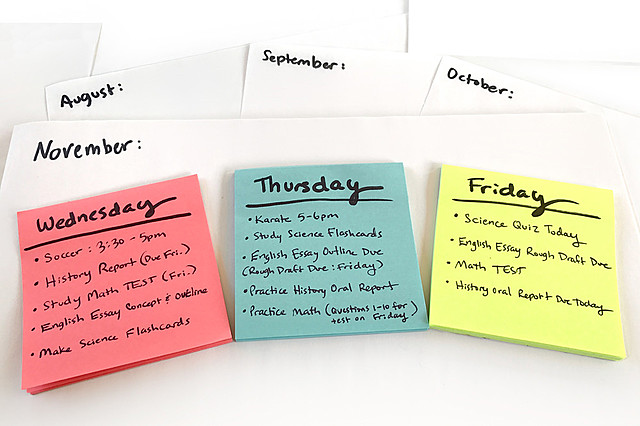 September:
October:
August:
November:
Wednesday
• Soccer: 3:30 - 5pm
• History Report (Due Fri.)
• Study Math TEST (Fri.)
• English Essay Concept & Outline
• Make Science Flashcards
Thursday
• Karate 5-6pm
• Study Science Flashcards
• English Essay Outline Due
(Rough Draft Due: Friday)
• Practice History Oral Report
• Practice Math (Questions 1-10 for
test on Friday)
Friday
• Science Quiz Today
• English Essay Rough Draft Due
• Math TEST
• History Oral Report Due Today